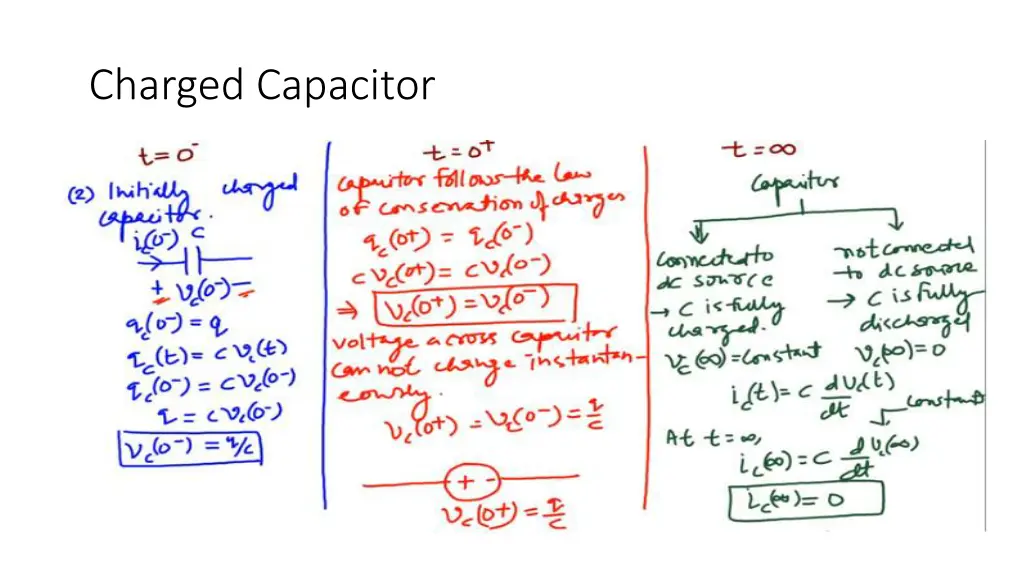 Charged Capacitor
t=0⁻
(2) Initially charged
capacitor.
i_c(0⁻) C
+ v_c(0⁻) −
q_c(0⁻) = q
q_c(t) = c v_c(t)
q_c(0⁻) = c v_c(0⁻)
q = c v_c(0⁻)
v_c(0⁻) = q/c
t = 0⁺
capacitor follows the law
of conservation of charges
q_c(0+) = q_c(0⁻)
c v_c(0+) = c v_c(0⁻)
⇒ v_c(0+) = v_c(0⁻)
voltage across capacitor
can not change instantan-
eously.
v_c(0+) = v_c(0⁻) = q/c
+ -
v_c(0+) = q/c
t = ∞
capacitor
connected to
dc source
→ C is fully
charged.
v_c(∞) = constant
not connected
to dc source
→ C is fully
discharged
v_c(∞) = 0
i_c(t) = c dv_c(t)/dt
constant
At t = ∞,
i_c(∞) = c dv_c(∞)/dt
i_c(∞) = 0